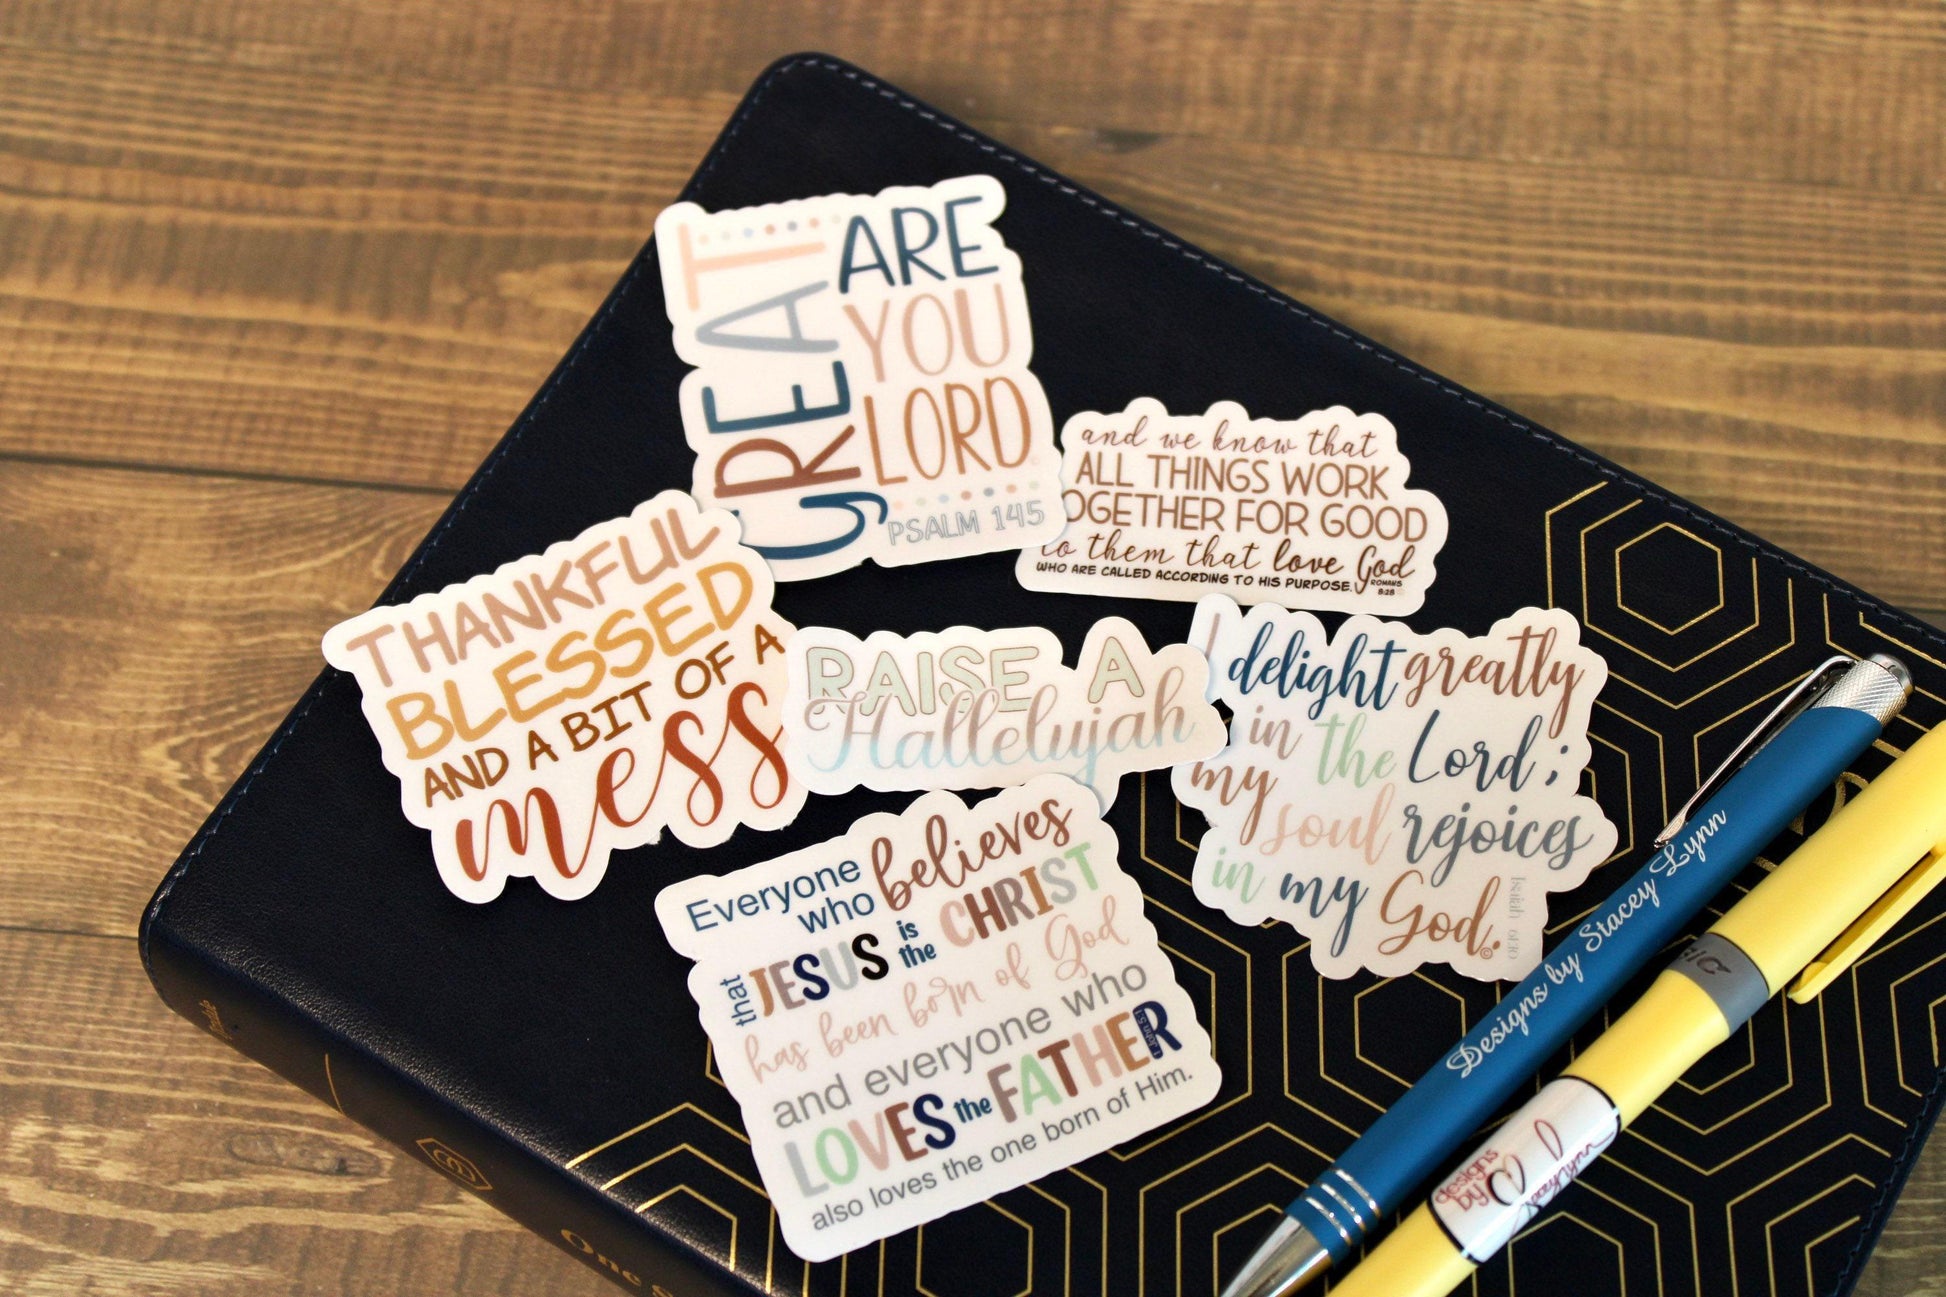 GREAT
ARE
YOU
LORD
PSALM 145
and we know that
ALL THINGS WORK
TOGETHER FOR GOOD
to them that love God
WHO ARE CALLED ACCORDING TO HIS PURPOSE.
ROMANS
8:28
THANKFUL
BLESSED
AND A BIT OF A
mess
RAISE A
Hallelujah
I delight greatly
in the Lord;
my soul rejoices
in my God.
Isaiah 61:10
Everyone
who believes
that JESUS is the CHRIST
has been born of God
and everyone who
LOVES the FATHER
1 John 5:1
also loves the one born of Him.
Designs by Stacey Lynn
BIC
designs
by
Stacey Lynn
One